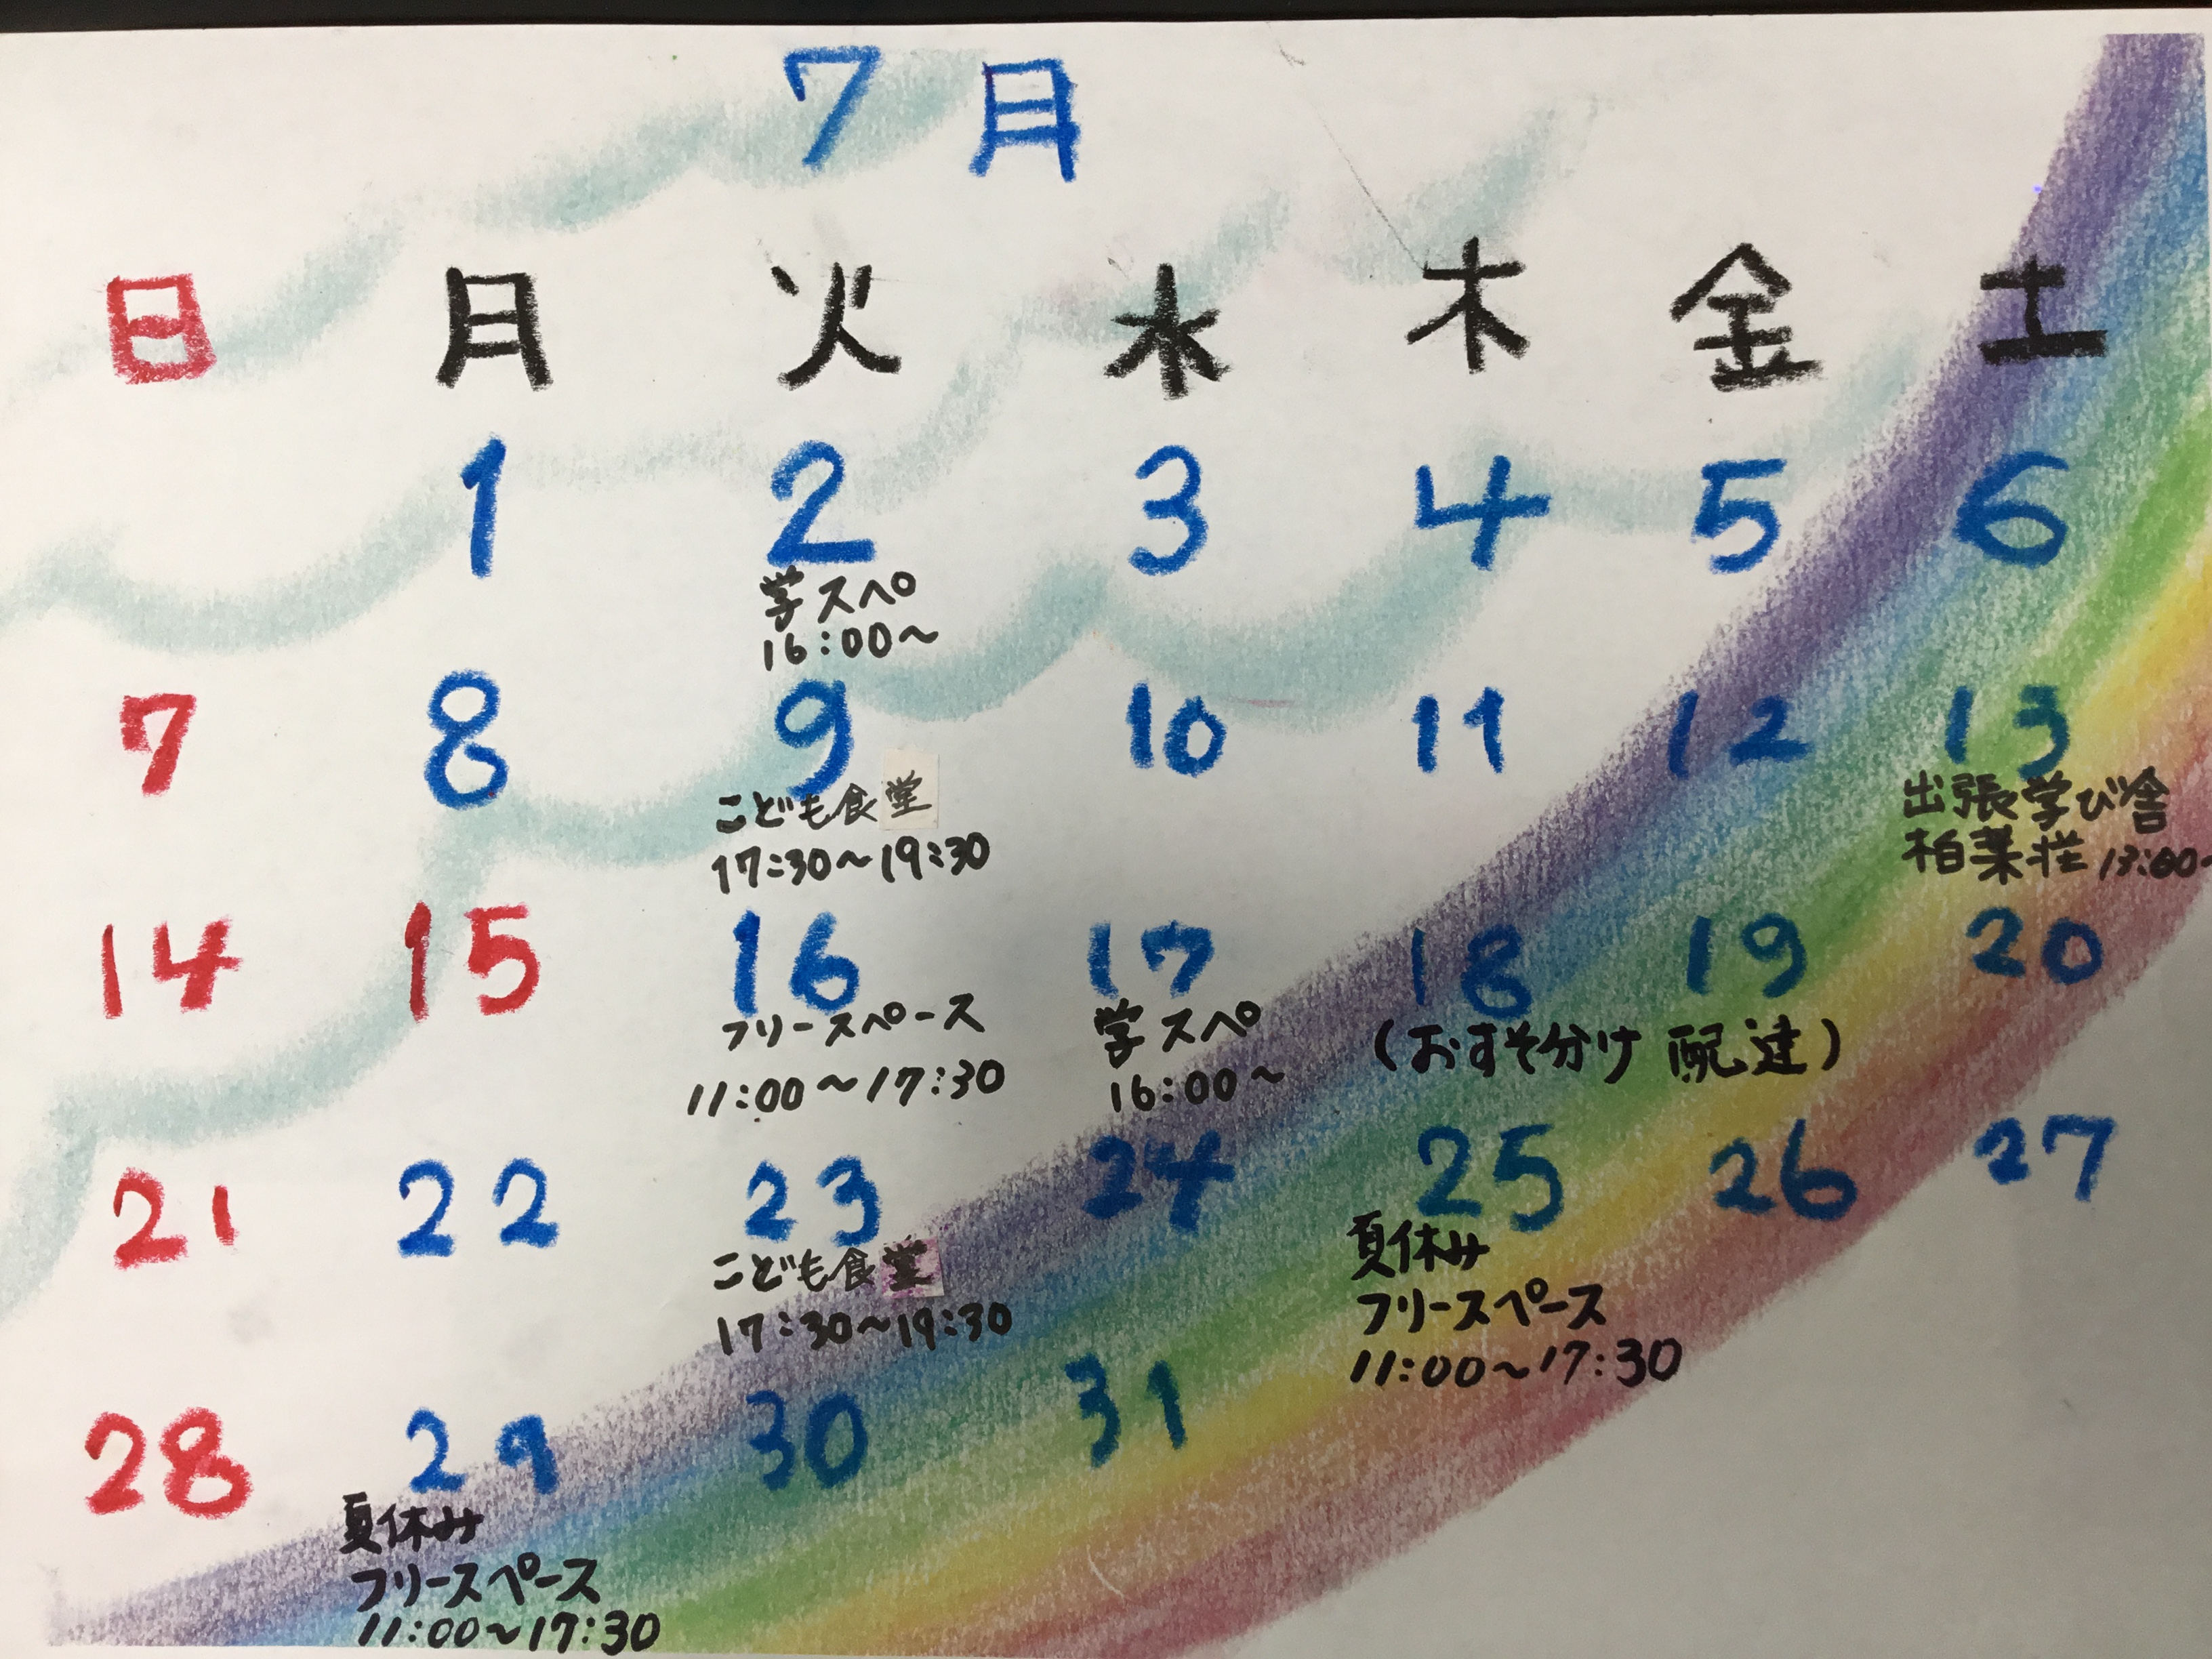 7月
日 月 火 水 木 金 土
1 2 3 4 5 6
学スペ
16:00〜
7 8 9 10 11 12 13
こども食堂
17:30〜19:30
出張学び舎
柏葉荘 13:00〜
14 15 16 17 18 19 20
フリースペース
11:00〜17:30
学スペ
16:00〜
(おすそ分け 配達)
21 22 23 24 25 26 27
こども食堂
17:30〜19:30
夏休み
フリースペース
11:00〜17:30
28 29 30 31
夏休み
フリースペース
11:00〜17:30